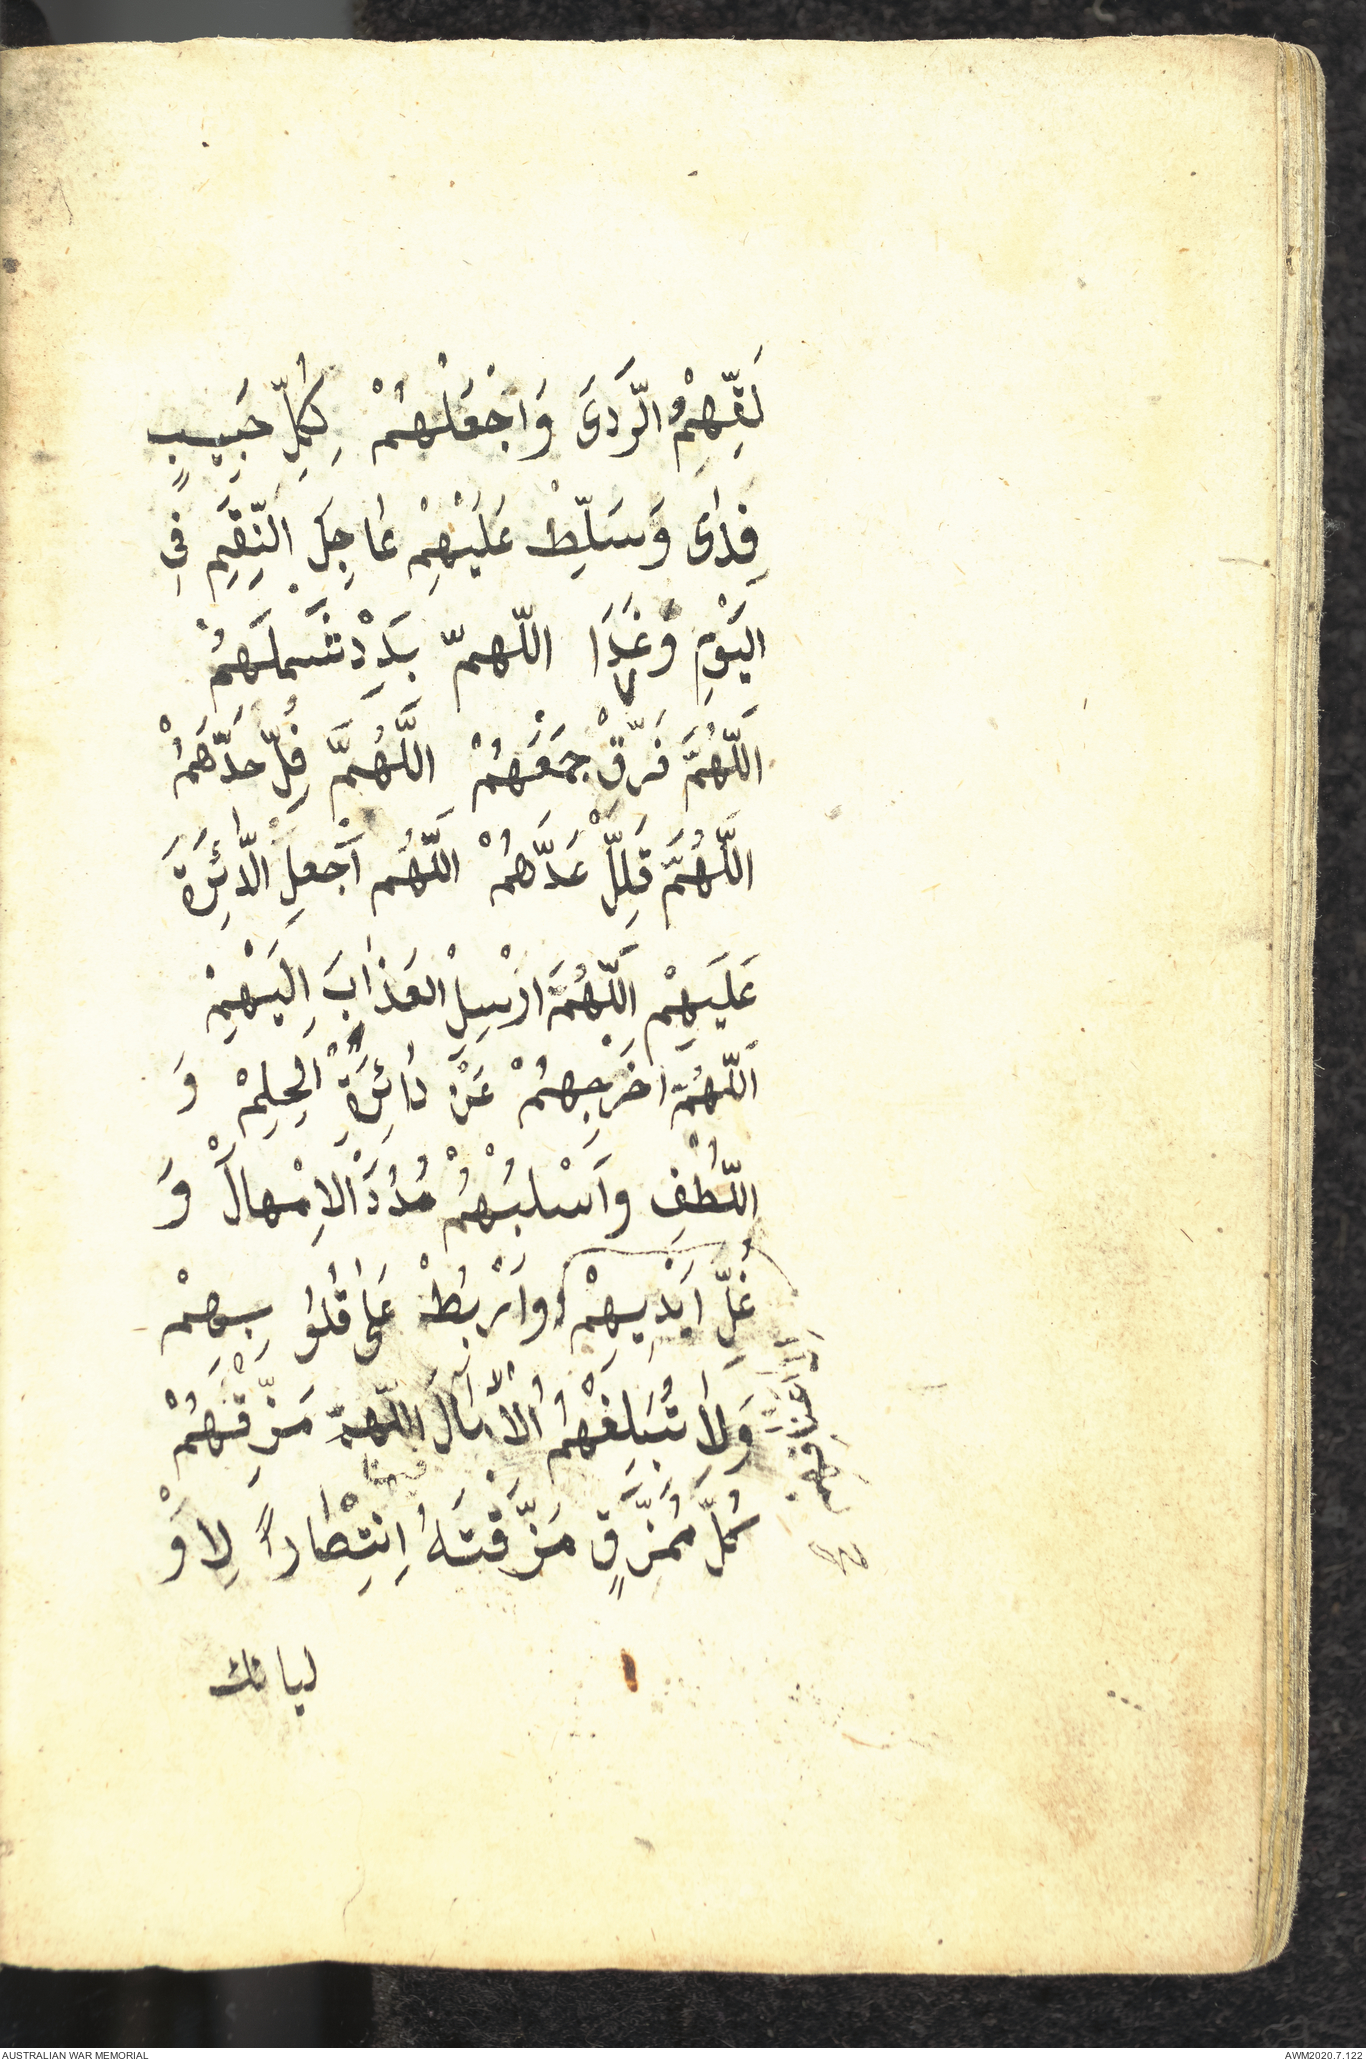 لَقِّهِمُ الرَّدىَ وَاجْعَلْهُمْ لِكُلِّ حَبِيبٍ
فِدٰى وَسَلِّطْ عَلَيْهِمْ عٰاجِلَ النِّقَمِ فِى
اليَوْمِ وَغَدَا اللّهمّ بَدِّدْ شَملَهُمْ
اَللّٰهُمَّ فَرِّقْ جَمَعَهُمْ اللَّهُمَّ فُلِّ حَدَّهُمْ
اللَّهُمَّ قَلِلّ عَدَّهُمْ اللَّهُم اَجعلِ الدّٰائِرَةَ
عَلَيهِمْ اَللّهُمَّ ارْسِلْ العَذٰابَ اِلَيْهِمْ
اَللّهُمَّ اخرَجِهُمْ عَنْ دٰائِرَةِ الحِلِمْ وَ
اللُّطْفِ واَسْلبُهُمْ مُدُدَ الاِمْهالْ وَ
غُلِّ اَيْدِيهِمْ واَرْبُطْ عَلىٰ قُلُوُ بِهِمْ
وَلاٰ تُبَلِغْهُمُ الْاٰمٰالَ اللّهمّ مَزِّقْهُمْ
كُلَّ مُمَزَّقٍ مَزَّقْتَهُ اِنتِصٰاراً لِاَوْ
ليائك
اِلىٰ اَعْنٰاقِهِم
صح
AUSTRALIAN WAR MEMORIAL
AWM2020.7.122